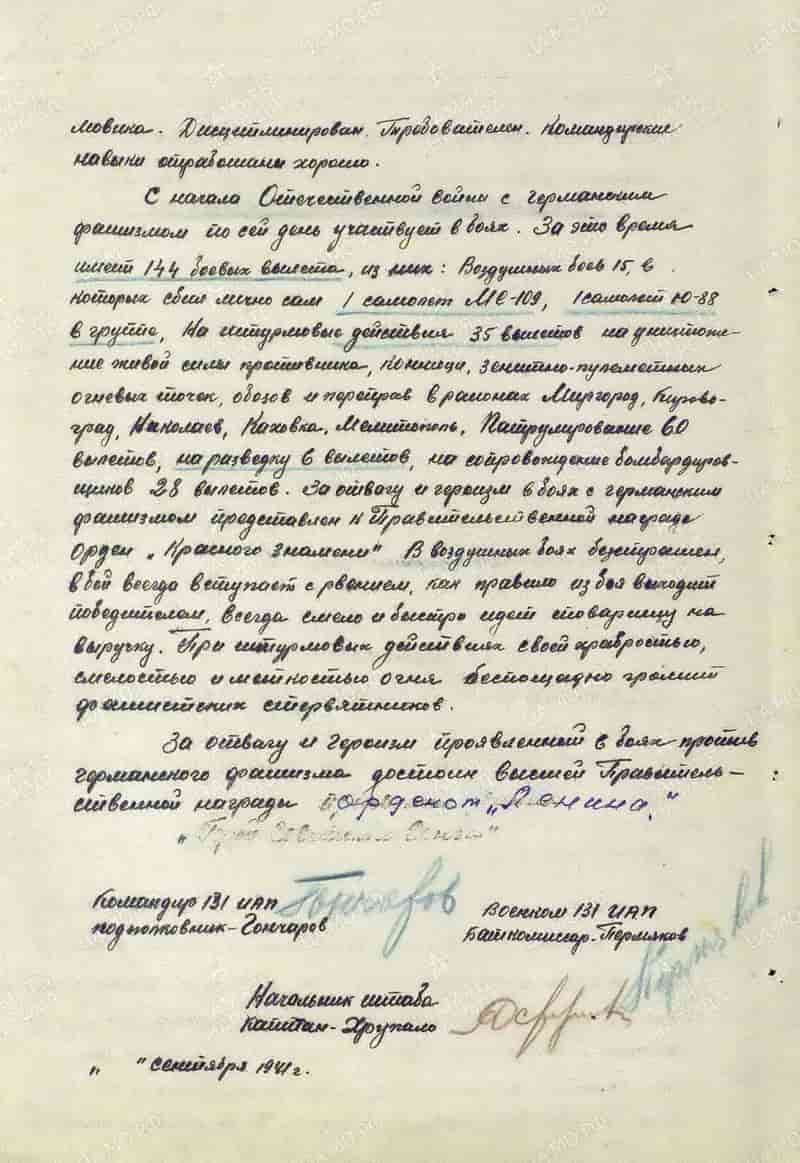 мовика. Дисциплинирован. Требователен. Командирские
навыки отработаны хорошо.
С начала Отечественной войны с германским
фашизмом по сей день участвует в боях. За это время
имеет 144 боевых вылета, из них: Воздушных боев 15, в
которых сбил лично сам 1 самолет МЕ-109, 1 самолет Ю-88
в группе, На штурмовые действия 35 вылетов на уничтоже-
ние живой силы противника, конницы, зенитно-пулеметных
огневых точек, обозов и переправ в районах Миргород, Кирово-
град, Николаев, Каховка, Мелитополь, Патрулирование 60
вылетов, на разведку 6 вылетов, на сопровождение бомбардиров-
щиков 28 вылетов. За отвагу и героизм в боях с германским
фашизмом представлен к Правительственной награде
Орден „Красного Знамени" В воздушных боях бесстрашен,
в бой всегда вступает с рвением, как правило из боя выходит
победителем, всегда смело и быстро идет товарищу на
выручку. При штурмовых действиях своей храбростью,
смелостью и меткостью огня беспощадно громит
фашистских стервятников.
За отвагу и героизм проявленный в боях против
германского фашизма достоин высшей Правитель-
ственной награды орденом „Ленина."
„Герой Советского Союза"
Командир 131 ИАП
подполковник-Гончаров
Гончаров
Военком 131 ИАП
Бат.комиссар-Пермяков
Пермяков
Начальник штаба
капитан-Хрупало
„ " сентября 1941г.
ЦАМО.РФ